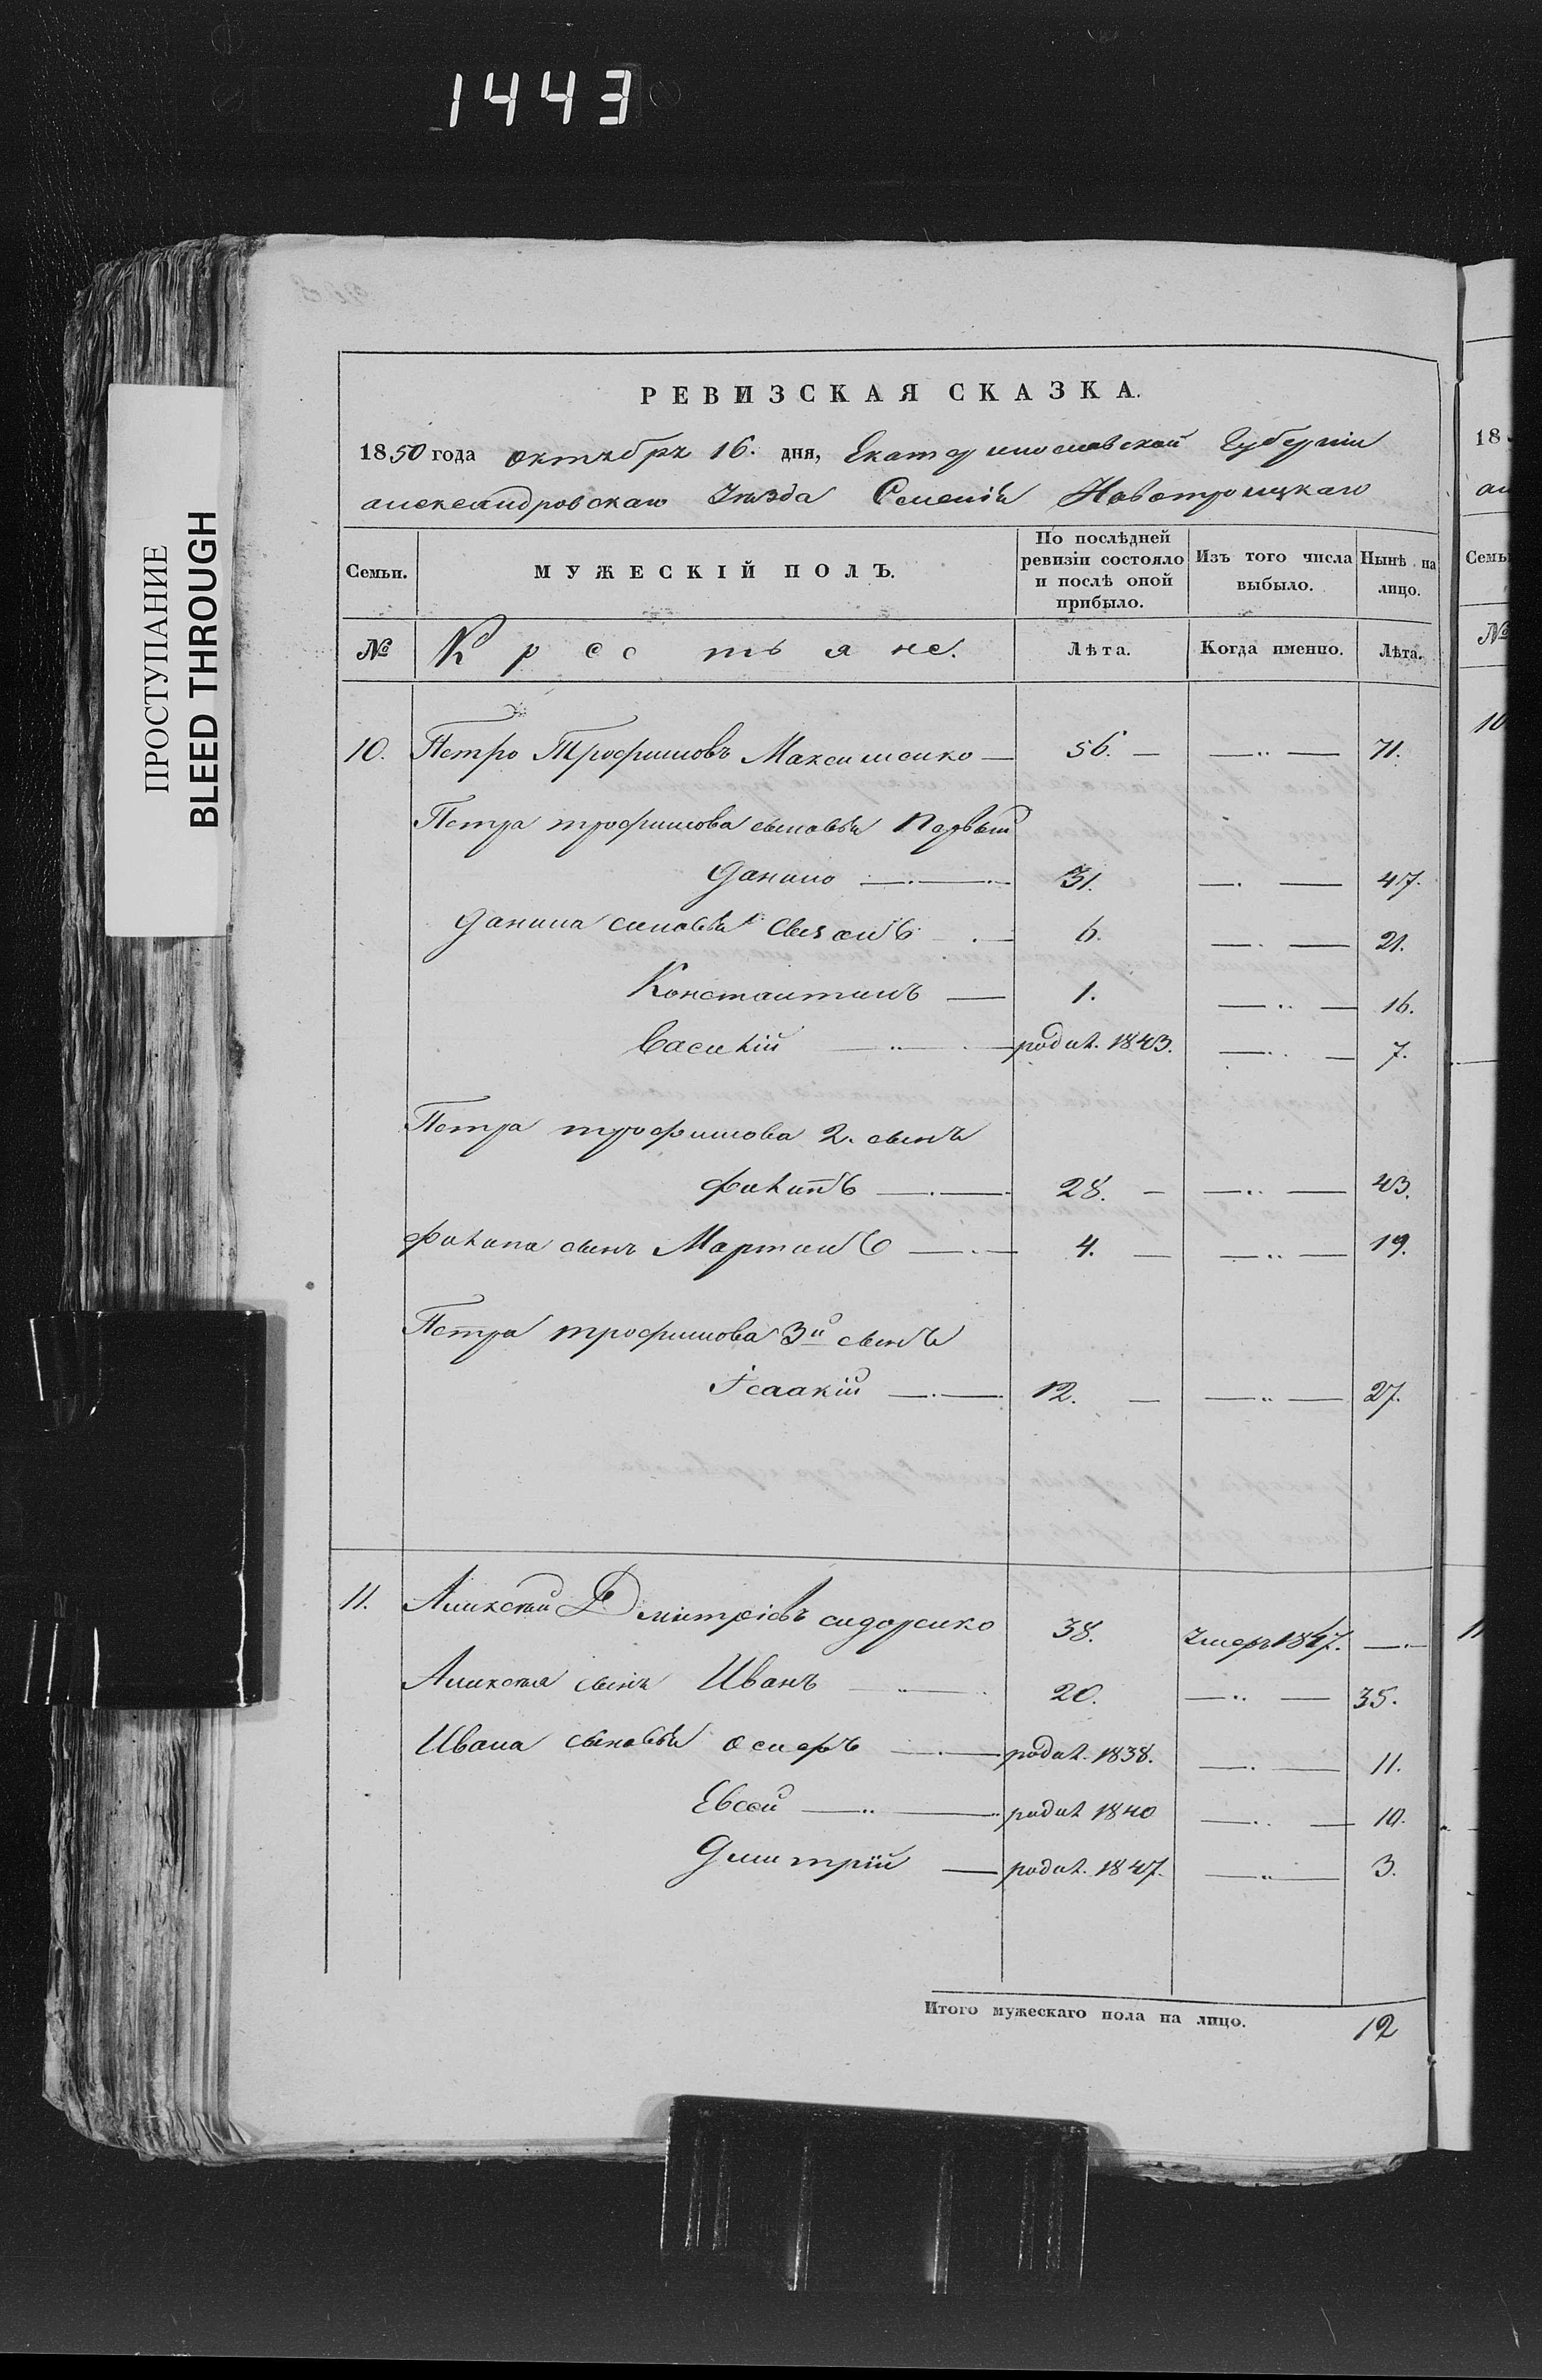 1443
ПРОСТУПАНИЕ
BLEED THROUGH
РЕВИЗСКАЯ СКАЗКА.
1850 года октября 16. дня, Екатеринославской Губерніи
александровскаго Уѣзда Селенія Новотроицкаго
Семьи. МУЖЕСКІЙ ПОЛЪ. По послѣдней ревизіи состояло и послѣ оной прибыло. Изъ того числа выбыло. Нынѣ на лицо.
№ Крестьяне. Лѣта. Когда именно. Лѣта.
10. Петро Трофимовъ Максименко — 56. — — „ — 71.
Петра трофимова сыновья Первый
Данило — 31. — 47.
Данила сыновья — 6. — 21.
Константинъ — 1. — „ — 16.
Василій — родил. 1843. — 7.
Петра трофимова 2. сынъ
Филипъ — 28. — — „ — 43.
Филипа сынъ Мартинъ — 4. — — „ — 19.
Петра трофимова 3й сынъ
Ісаакій — 12. — — „ — 27.
11. Алихсѣй Дмитріевъ сидоренко 38. Умеръ 1847. —
Алихсѣя сынъ Иванъ — 20. — „ — 35.
Ивана сыновья осипъ — родил. 1838. — 11.
Евсей — „ — родил 1840 — 10.
Дмитрій — родил. 1847. — „ — 3.
Итого мужескаго пола на лицо. 12
18
ал
Семьи
№
10
11